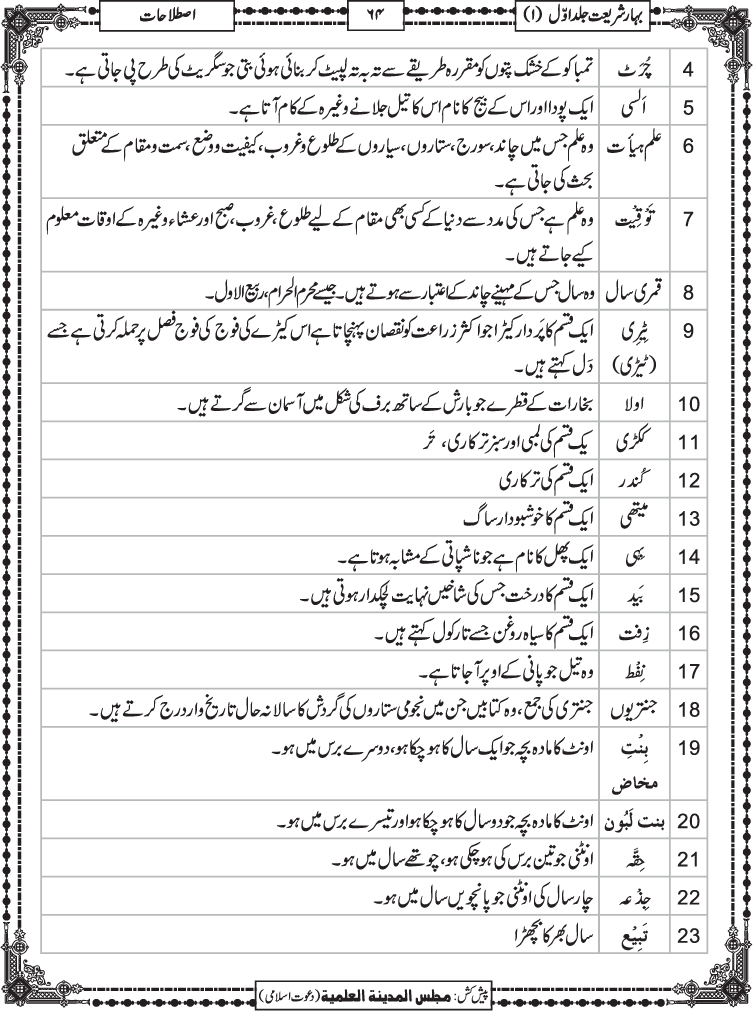 بہار شریعت جلد اوّل (۱)
۶۴
اصطلاحات
4 چُرَٹ تمباکو کے خشک پتوں کو مقررہ طریقے سے تہ بہ تہ لپیٹ کر بنائی ہوئی بتی جو سگریٹ کی طرح پی جاتی ہے۔
5 اَلسی ایک پودا اور اس کے بیج کا نام اس کا تیل جلانے وغیرہ کے کام آتا ہے۔
6 علم ہیأت وہ علم جس میں چاند، سورج، ستاروں، سیاروں کے طلوع و غروب، کیفیت و وضع، سمت و مقام کے متعلق
بحث کی جاتی ہے۔
7 تَوْقِیْت وہ علم ہے جس کی مدد سے دنیا کے کسی بھی مقام کے لیے طلوع، غروب، صبح اور عشاء وغیرہ کے اوقات معلوم
کیے جاتے ہیں۔
8 قمری سال وہ سال جس کے مہینے چاند کے اعتبار سے ہوتے ہیں۔ جیسے محرم الحرام، ربیع الاول۔
9 ٹِیرِی ایک قسم کا پَردار کیڑا جو اکثر زراعت کو نقصان پہنچاتا ہے اس کیڑے کی فوج کی فوج فصل پر حملہ کرتی ہے جسے
(ٹیڑی) دَل کہتے ہیں۔
10 اولا بخارات کے قطرے جو بارش کے ساتھ برف کی شکل میں آسمان سے گرتے ہیں۔
11 ککڑی یک قسم کی لمبی اور سبز ترکاری، تَر
12 کُندر ایک قسم کی ترکاری
13 میتھی ایک قسم کا خوشبودار ساگ
14 بہی ایک پھل کا نام ہے جو ناشپاتی کے مشابہ ہوتا ہے۔
15 بَید ایک قسم کا درخت جس کی شاخیں نہایت لچکدار ہوتی ہیں۔
16 زِفت ایک قسم کا سیاہ روغن جسے تارکول کہتے ہیں۔
17 نِفْط وہ تیل جو پانی کے اوپر آجاتا ہے۔
18 جنتریوں جنتری کی جمع، وہ کتابیں جن میں نجومی ستاروں کی گردش کا سالانہ حال تاریخ وار درج کرتے ہیں۔
19 بِنْتِ اونٹ کا مادہ بچہ جو ایک سال کا ہو چکا ہو، دوسرے برس میں ہو۔
مخاض
20 بنت لَبُون اونٹ کا مادہ بچہ جو دو سال کا ہو چکا ہو اور تیسرے برس میں ہو۔
21 حِقَّہ اونٹنی جو تین برس کی ہو چکی ہو، چوتھے سال میں ہو۔
22 جِذْعہ چار سال کی اونٹنی جو پانچویں سال میں ہو۔
23 تَبِیْع سال بھر کا بچھڑا
پیش کش: مجلس المدینة العلمیة (دعوت اسلامی)